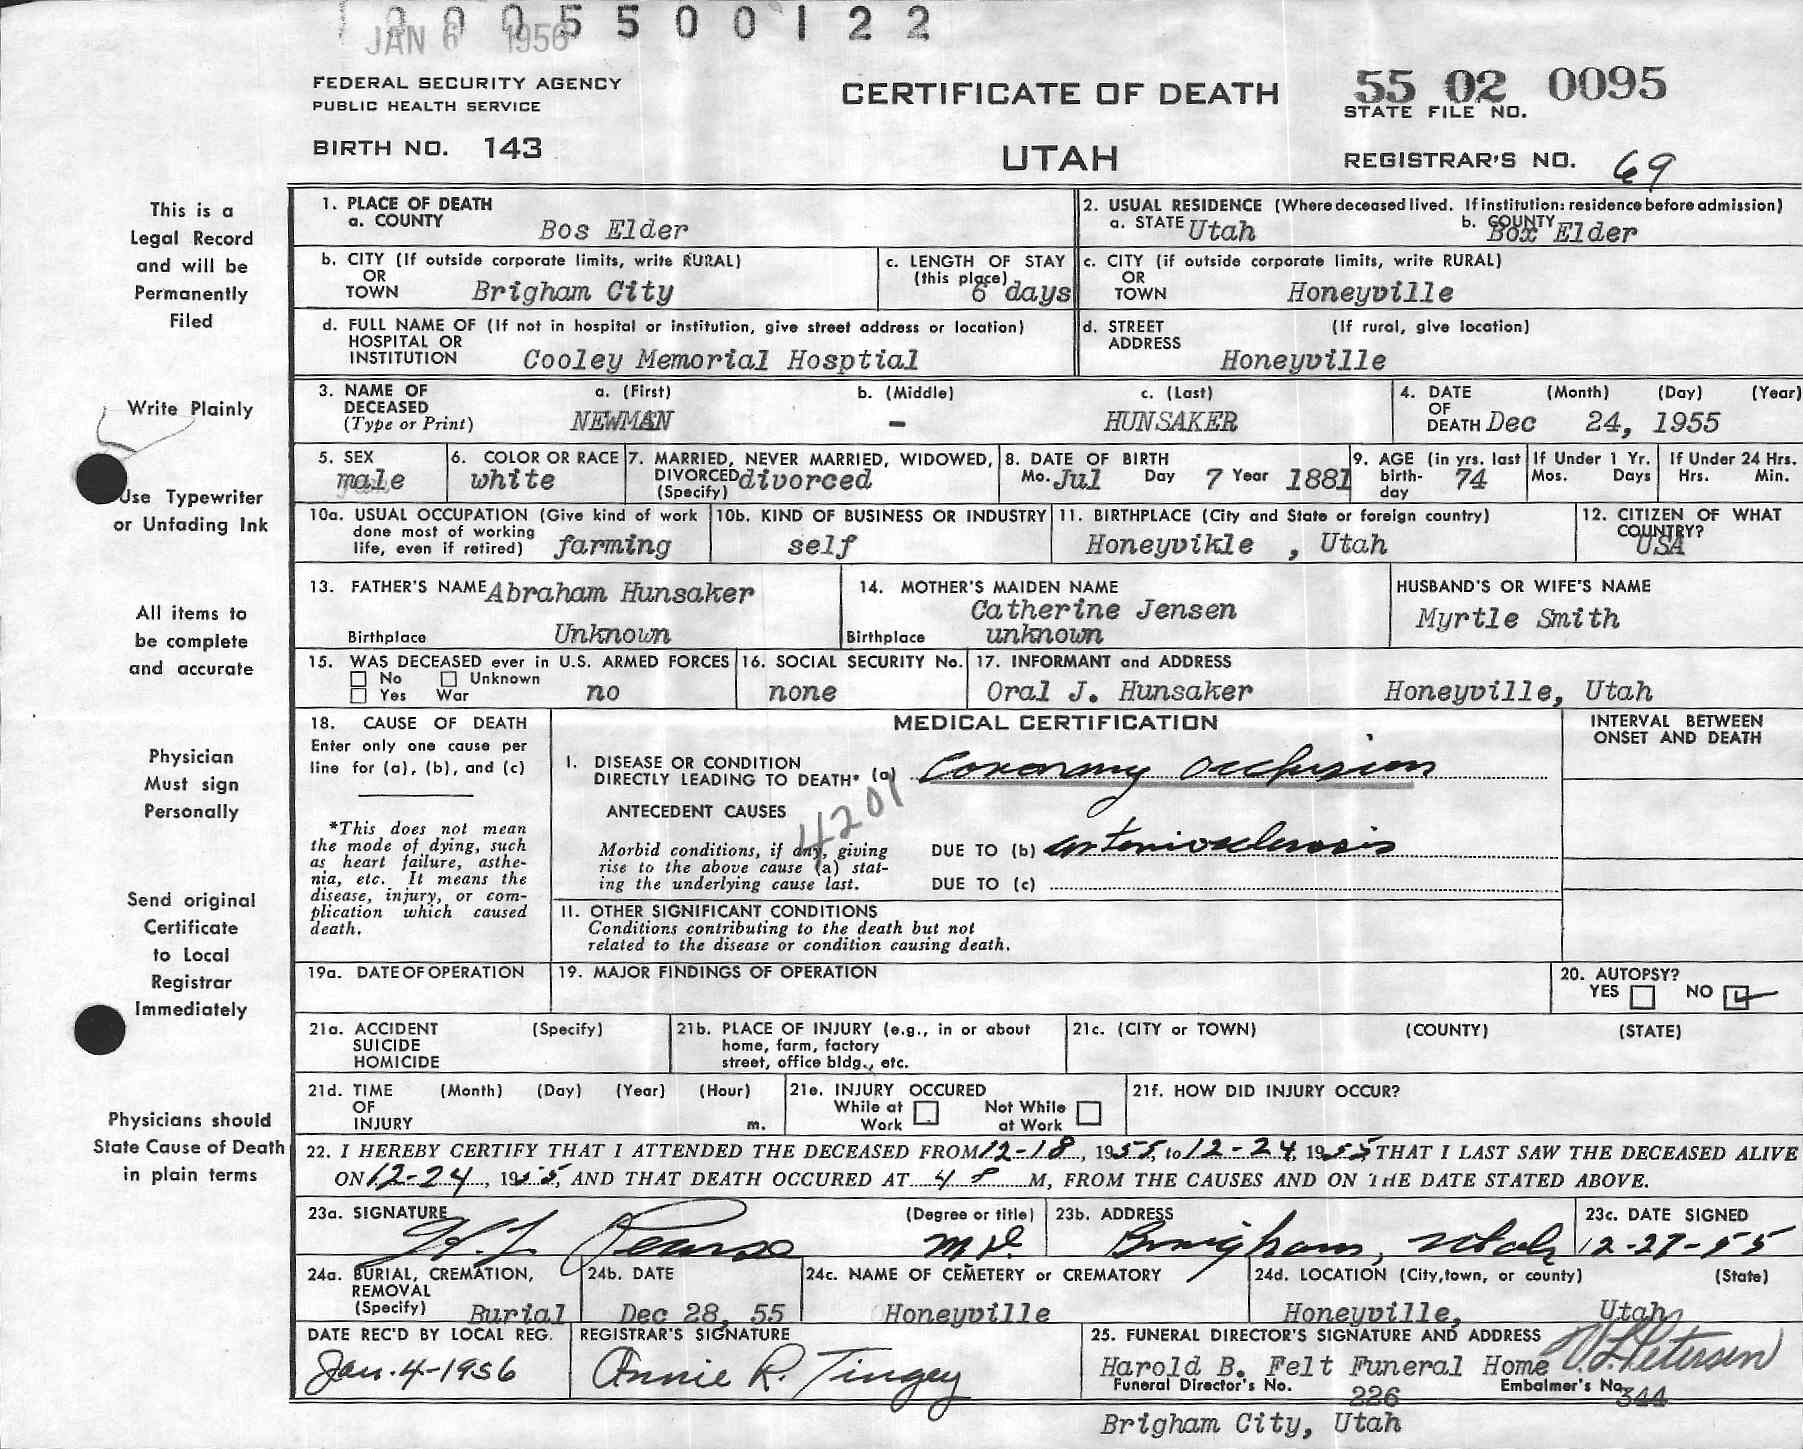 1 0 0 0 5 5 0 0 1 2 2
JAN 6 1956
FEDERAL SECURITY AGENCY
PUBLIC HEALTH SERVICE
BIRTH NO. 143
CERTIFICATE OF DEATH
UTAH
55 02 0095
STATE FILE NO.
REGISTRAR'S NO. 69
This is a
Legal Record
and will be
Permanently
Filed
Write Plainly
Use Typewriter
or Unfading Ink
All items to
be complete
and accurate
Physician
Must sign
Personally
Send original
Certificate
to Local
Registrar
Immediately
Physicians should
State Cause of Death
in plain terms
1. PLACE OF DEATH
a. COUNTY Bos Elder
2. USUAL RESIDENCE (Where deceased lived. If institution: residence before admission)
a. STATE Utah b. COUNTY Box Elder
b. CITY (If outside corporate limits, write RURAL)
OR
TOWN Brigham City
c. LENGTH OF STAY
(this place) 6 days
c. CITY (if outside corporate limits, write RURAL)
OR
TOWN Honeyville
d. FULL NAME OF (If not in hospital or institution, give street address or location)
HOSPITAL OR
INSTITUTION Cooley Memorial Hosptial
d. STREET (If rural, give location)
ADDRESS Honeyville
3. NAME OF a. (First) b. (Middle) c. (Last)
DECEASED
(Type or Print) NEWMAN - HUNSAKER
4. DATE (Month) (Day) (Year)
OF
DEATH Dec 24, 1955
5. SEX
male
6. COLOR OR RACE
white
7. MARRIED, NEVER MARRIED, WIDOWED,
DIVORCED divorced
(Specify)
8. DATE OF BIRTH
Mo. Jul Day 7 Year 1881
9. AGE (in yrs. last
birth- 74
day
If Under 1 Yr.
Mos. Days
If Under 24 Hrs.
Hrs. Min.
10a. USUAL OCCUPATION (Give kind of work
done most of working
life, even if retired) farming
10b. KIND OF BUSINESS OR INDUSTRY
self
11. BIRTHPLACE (City and State or foreign country)
Honeyvikle , Utah
12. CITIZEN OF WHAT
COUNTRY?
USA
13. FATHER'S NAME Abraham Hunsaker
Birthplace Unknown
14. MOTHER'S MAIDEN NAME
Catherine Jensen
Birthplace unknown
HUSBAND'S OR WIFE'S NAME
Myrtle Smith
15. WAS DECEASED ever in U.S. ARMED FORCES
No Unknown
Yes War no
16. SOCIAL SECURITY No.
none
17. INFORMANT and ADDRESS
Oral J. Hunsaker Honeyville, Utah
18. CAUSE OF DEATH
Enter only one cause per
line for (a), (b), and (c)
*This does not mean
the mode of dying, such
as heart failure, asthe-
nia, etc. It means the
disease, injury, or com-
plication which caused
death.
MEDICAL CERTIFICATION
INTERVAL BETWEEN
ONSET AND DEATH
I. DISEASE OR CONDITION
DIRECTLY LEADING TO DEATH* (a) Coronary occlusion
4201
ANTECEDENT CAUSES
Morbid conditions, if any, giving
rise to the above cause (a) stat-
ing the underlying cause last.
DUE TO (b) arteriosclerosis
DUE TO (c)
II. OTHER SIGNIFICANT CONDITIONS
Conditions contributing to the death but not
related to the disease or condition causing death.
19a. DATE OF OPERATION
19. MAJOR FINDINGS OF OPERATION
20. AUTOPSY?
YES NO
21a. ACCIDENT (Specify)
SUICIDE
HOMICIDE
21b. PLACE OF INJURY (e.g., in or about
home, farm, factory
street, office bldg., etc.
21c. (CITY or TOWN) (COUNTY) (STATE)
21d. TIME (Month) (Day) (Year) (Hour)
OF
INJURY m.
21e. INJURY OCCURED
While at Work
Not While at Work
21f. HOW DID INJURY OCCUR?
22. I HEREBY CERTIFY THAT I ATTENDED THE DECEASED FROM 12-18, 1955, to 12-24, 1955, THAT I LAST SAW THE DECEASED ALIVE
ON 12-24, 1955, AND THAT DEATH OCCURED AT 4 M, FROM THE CAUSES AND ON THE DATE STATED ABOVE.
23a. SIGNATURE (Degree or title)
Pearse MD.
23b. ADDRESS
Brigham, Utah
23c. DATE SIGNED
12-27-55
24a. BURIAL, CREMATION,
REMOVAL
(Specify) Burial
24b. DATE
Dec 28, 55
24c. NAME OF CEMETERY or CREMATORY
Honeyville
24d. LOCATION (City, town, or county) (State)
Honeyville, Utah
DATE REC'D BY LOCAL REG.
Jan. 4-1956
REGISTRAR'S SIGNATURE
Annie R. Tingey
25. FUNERAL DIRECTOR'S SIGNATURE AND ADDRESS
Harold B. Felt Funeral Home V.L. Petersen
Funeral Director's No. 226 Embalmer's No. 344
Brigham City, Utah